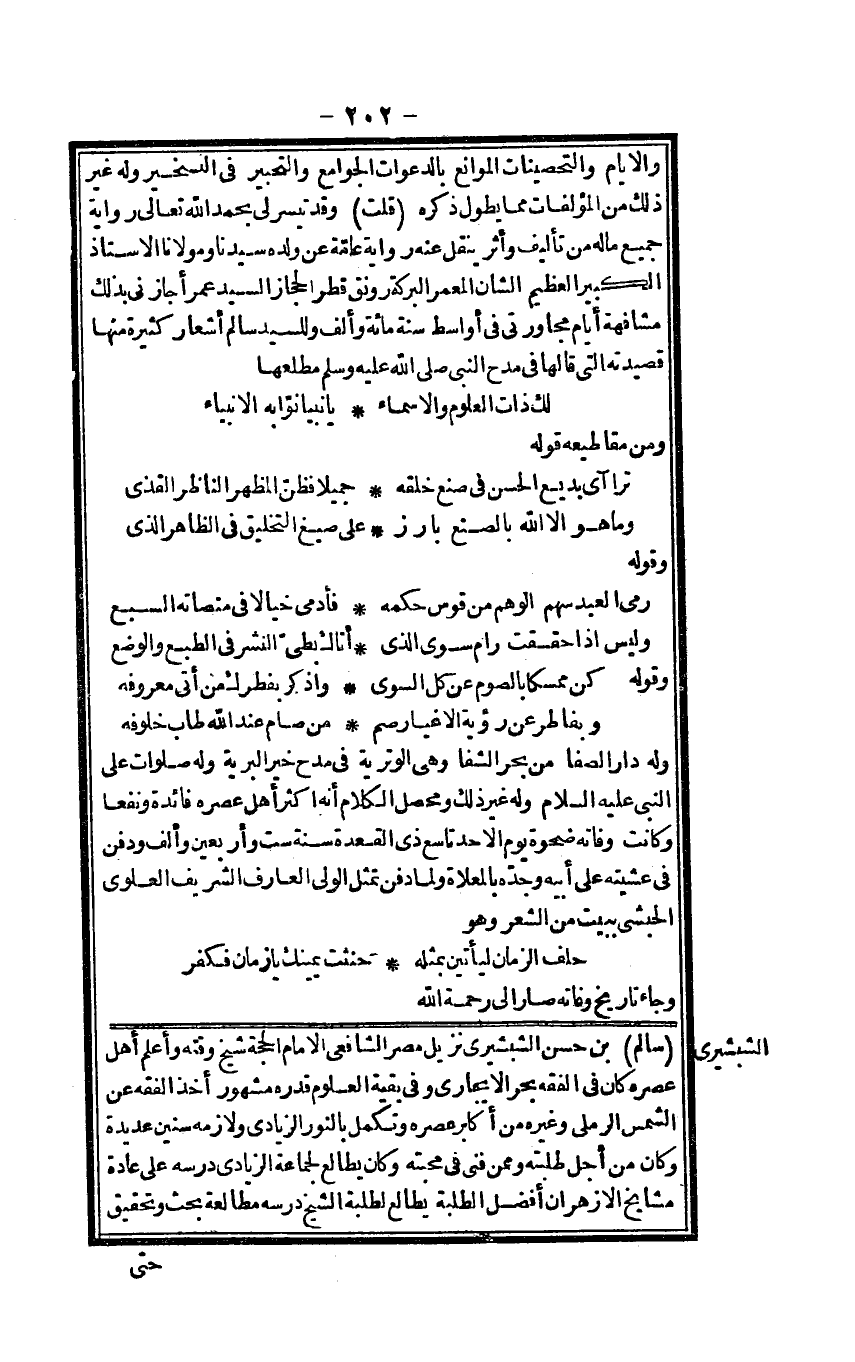 - ٢٠٢ -
والايام والتحصينات الموانع بالدعوات الجوامع والتحبير فى التسخير وله غير
ذلك من المؤلفات مما يطول ذكره (قلت) وقد تيسر لى بحمد الله تعالى رواية
جميع ماله من تأليف وأثر ينقل عنه رواية عامّة عن ولده سيدنا ومولانا الاستاذ
الكبير العظيم الشان المعمر البركة رونق قطر الحجاز السيد عمر أجازنى بذلك
مشافهة أيام مجاورتى فى أواسط سنة مائة وألف وللسيد سالم أشعار كثيرة منها
قصيدته التى قالها فى مدح النبى صلى الله عليه وسلم مطلعها
لك ذات العلوم والاسماء * يا نبيا نوّابه الانبياء
ومن مقاطيعه قوله
تراآى بديع الحسن فى صنع خلقه * جميلا فظنّ المظهر الناظر القذى
وماهو الا الله بالصنع بارز * على صبغ التخليق فى الظاهر الذى
وقوله
رمى العبد سهم الوهم من قوس حكمه * فأدمى خيالا فى منصاته السبع
وليس اذا حققت رام سوى الذى * أنالك بطىّ النشر فى الطبع والوضع
وقوله كن ممسكا بالصوم عن كل السوى * واذكر بفطرك من أتى معروفه
وبفاطر عن رؤية الاغيار صم * من صام عند الله طاب خلوفه
وله دار الصفا من بحر الشفا وهى الوترية فى مدح خير البرية وله صلوات على
النبى عليه السلام وله غير ذلك ومحصل الكلام أنه اكثر أهل عصره فائدة ونفعا
وكانت وفاته ضحوة يوم الاحد تاسع ذى القعدة سنة ست وأربعين وألف ودفن
فى عشيته على أبيه وجدّه بالمعلاة ولما دفن تمثل الولى العارف الشريف العلوى
الحبشى ببيت من الشعر وهو
حلف الزمان ليأتين بمثله * حنثت يمينك يا زمان فكفر
وجاء تاريخ وفاته صار الى رحمة الله
الشبشيرى
(سالم) بن حسن الشبشيرى نزيل مصر الشافعى الامام الحجة شيخ وقته وأعلم أهل
عصره كان فى الفقه بحر الايجارى وفى بقية العلوم قدره مشهور أخذ الفقه عن
الشمس الرملى وغيره من أكابر عصره وتكمل بالنور الزيادى ولازمه سنين عديدة
وكان من أجل طلبته وممن فنى فى محبته وكان يطالع لجماعة الزيادى درسه على عادة
مشايخ الازهر ان أفضل الطلبة يطالع لطلبة الشيخ درسه مطالعة بحث وتحقيق
حتى